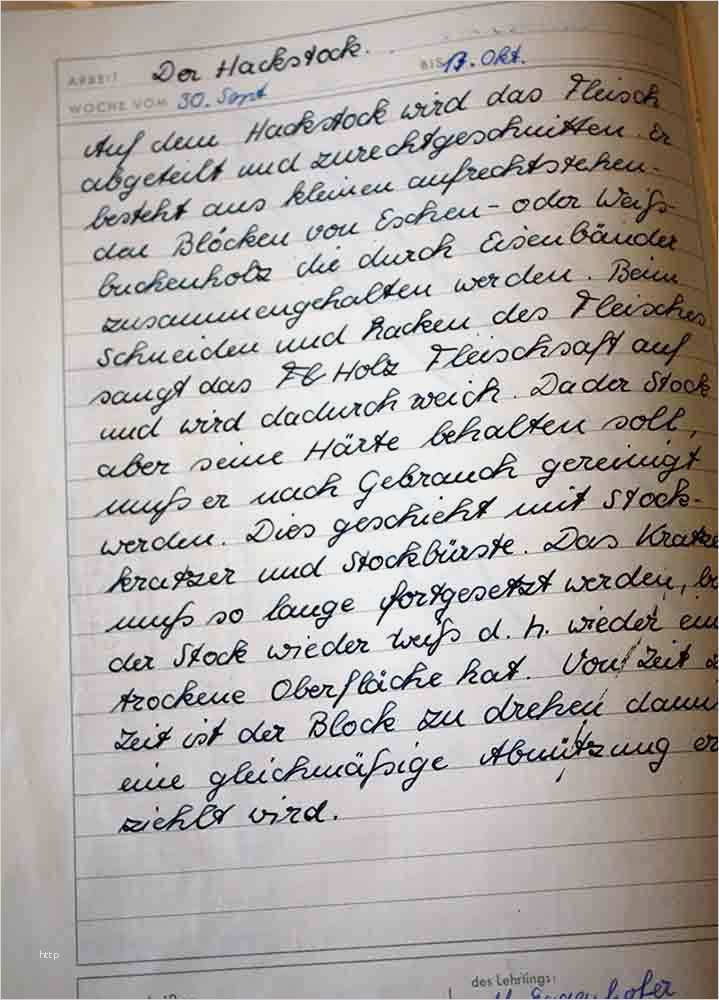 ARBEIT Der Hackstock.
WOCHE VOM 30. Sept BIS 17. Okt.
Auf dem Hackstock wird das Fleisch
abgeteilt und zurechtgeschnitten. Er
besteht aus kleinen aufrechtstehen-
den Blöcken von Eschen- oder Weiß-
buchenholz die durch Eisenbänder
zusammengehalten werden. Beim
Schneiden und hacken des Fleisches
saugt das Holz Fleischsaft auf
und wird dadurch weich. Da der Stock
aber seine Härte behalten soll,
muß er nach Gebrauch gereinigt
werden. Dies geschieht mit Stock-
kratzer und Stockbürste. Das Kratze
muß so lange fortgesetzt werden,
der Stock wieder weiß d. h. wieder ein
trockene Oberfläche hat. Von Zeit z
Zeit ist der Block zu drehen dami
eine gleichmäßige Abnützung er
ziehlt wird.
http
des Lehrlings: